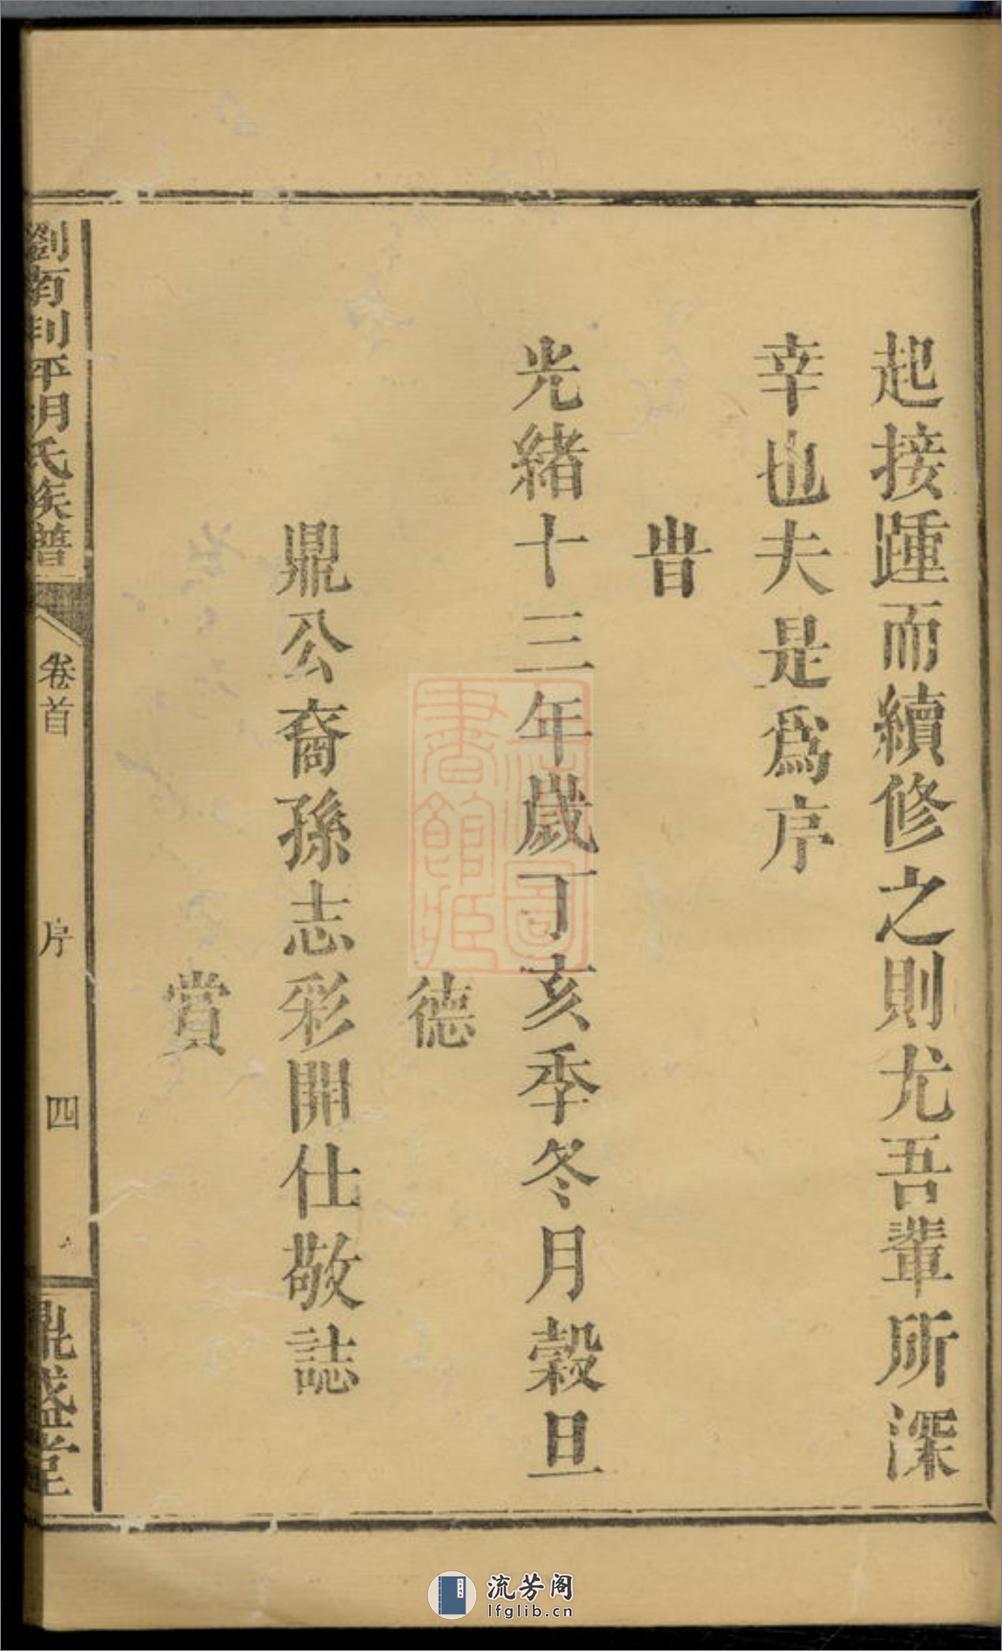 起接踵而續修之則尤吾輩所深
幸也夫是爲序
旹
光緒十三年歲丁亥季冬月穀旦
德
鼎公裔孫志彩開仕敬誌
賞
南平氏族譜
卷首
序
四
鼎盛堂
上海圖書館藏
流芳阁
lfglib.cn